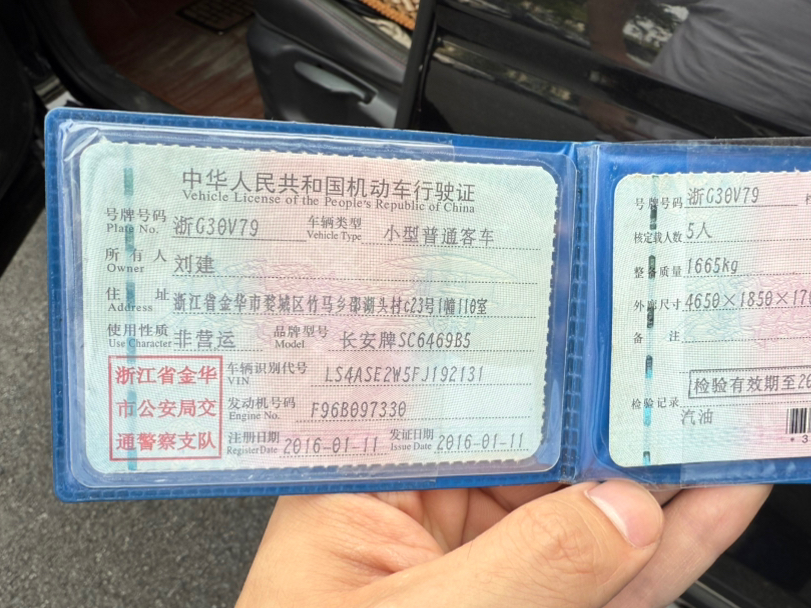 中华人民共和国机动车行驶证
Vehicle License of the People's Republic of China
号牌号码 浙G30V79 车辆类型 小型普通客车
Plate No. Vehicle Type
所有人 刘建
Owner
住址 浙江省金华市婺城区竹马乡邵湖头村c23号1幢110室
Address
使用性质 非营运 品牌型号 长安牌SC6469B5
Use Character Model
浙江省金华
市公安局交
通警察支队
车辆识别代号 LS4ASE2W5FJ192131
VIN
发动机号码 F96B097330
Engine No.
注册日期 2016-01-11 发证日期 2016-01-11
Register Date Issue Date
号牌号码 浙G30V79
核定载人数 5人
整备质量 1665kg
外廓尺寸 4650×1850×17
备注
检验有效期至20
检验记录
汽油